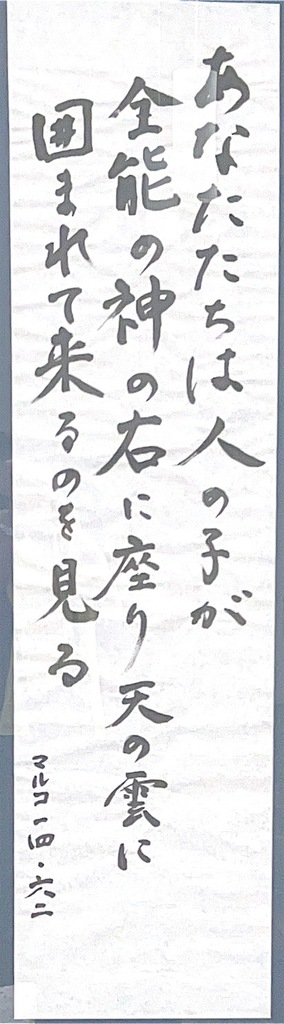 あなたたちは人の子が
全能の神の右に座り天の雲に
囲まれて来るのを見る
マルコ一四・六二